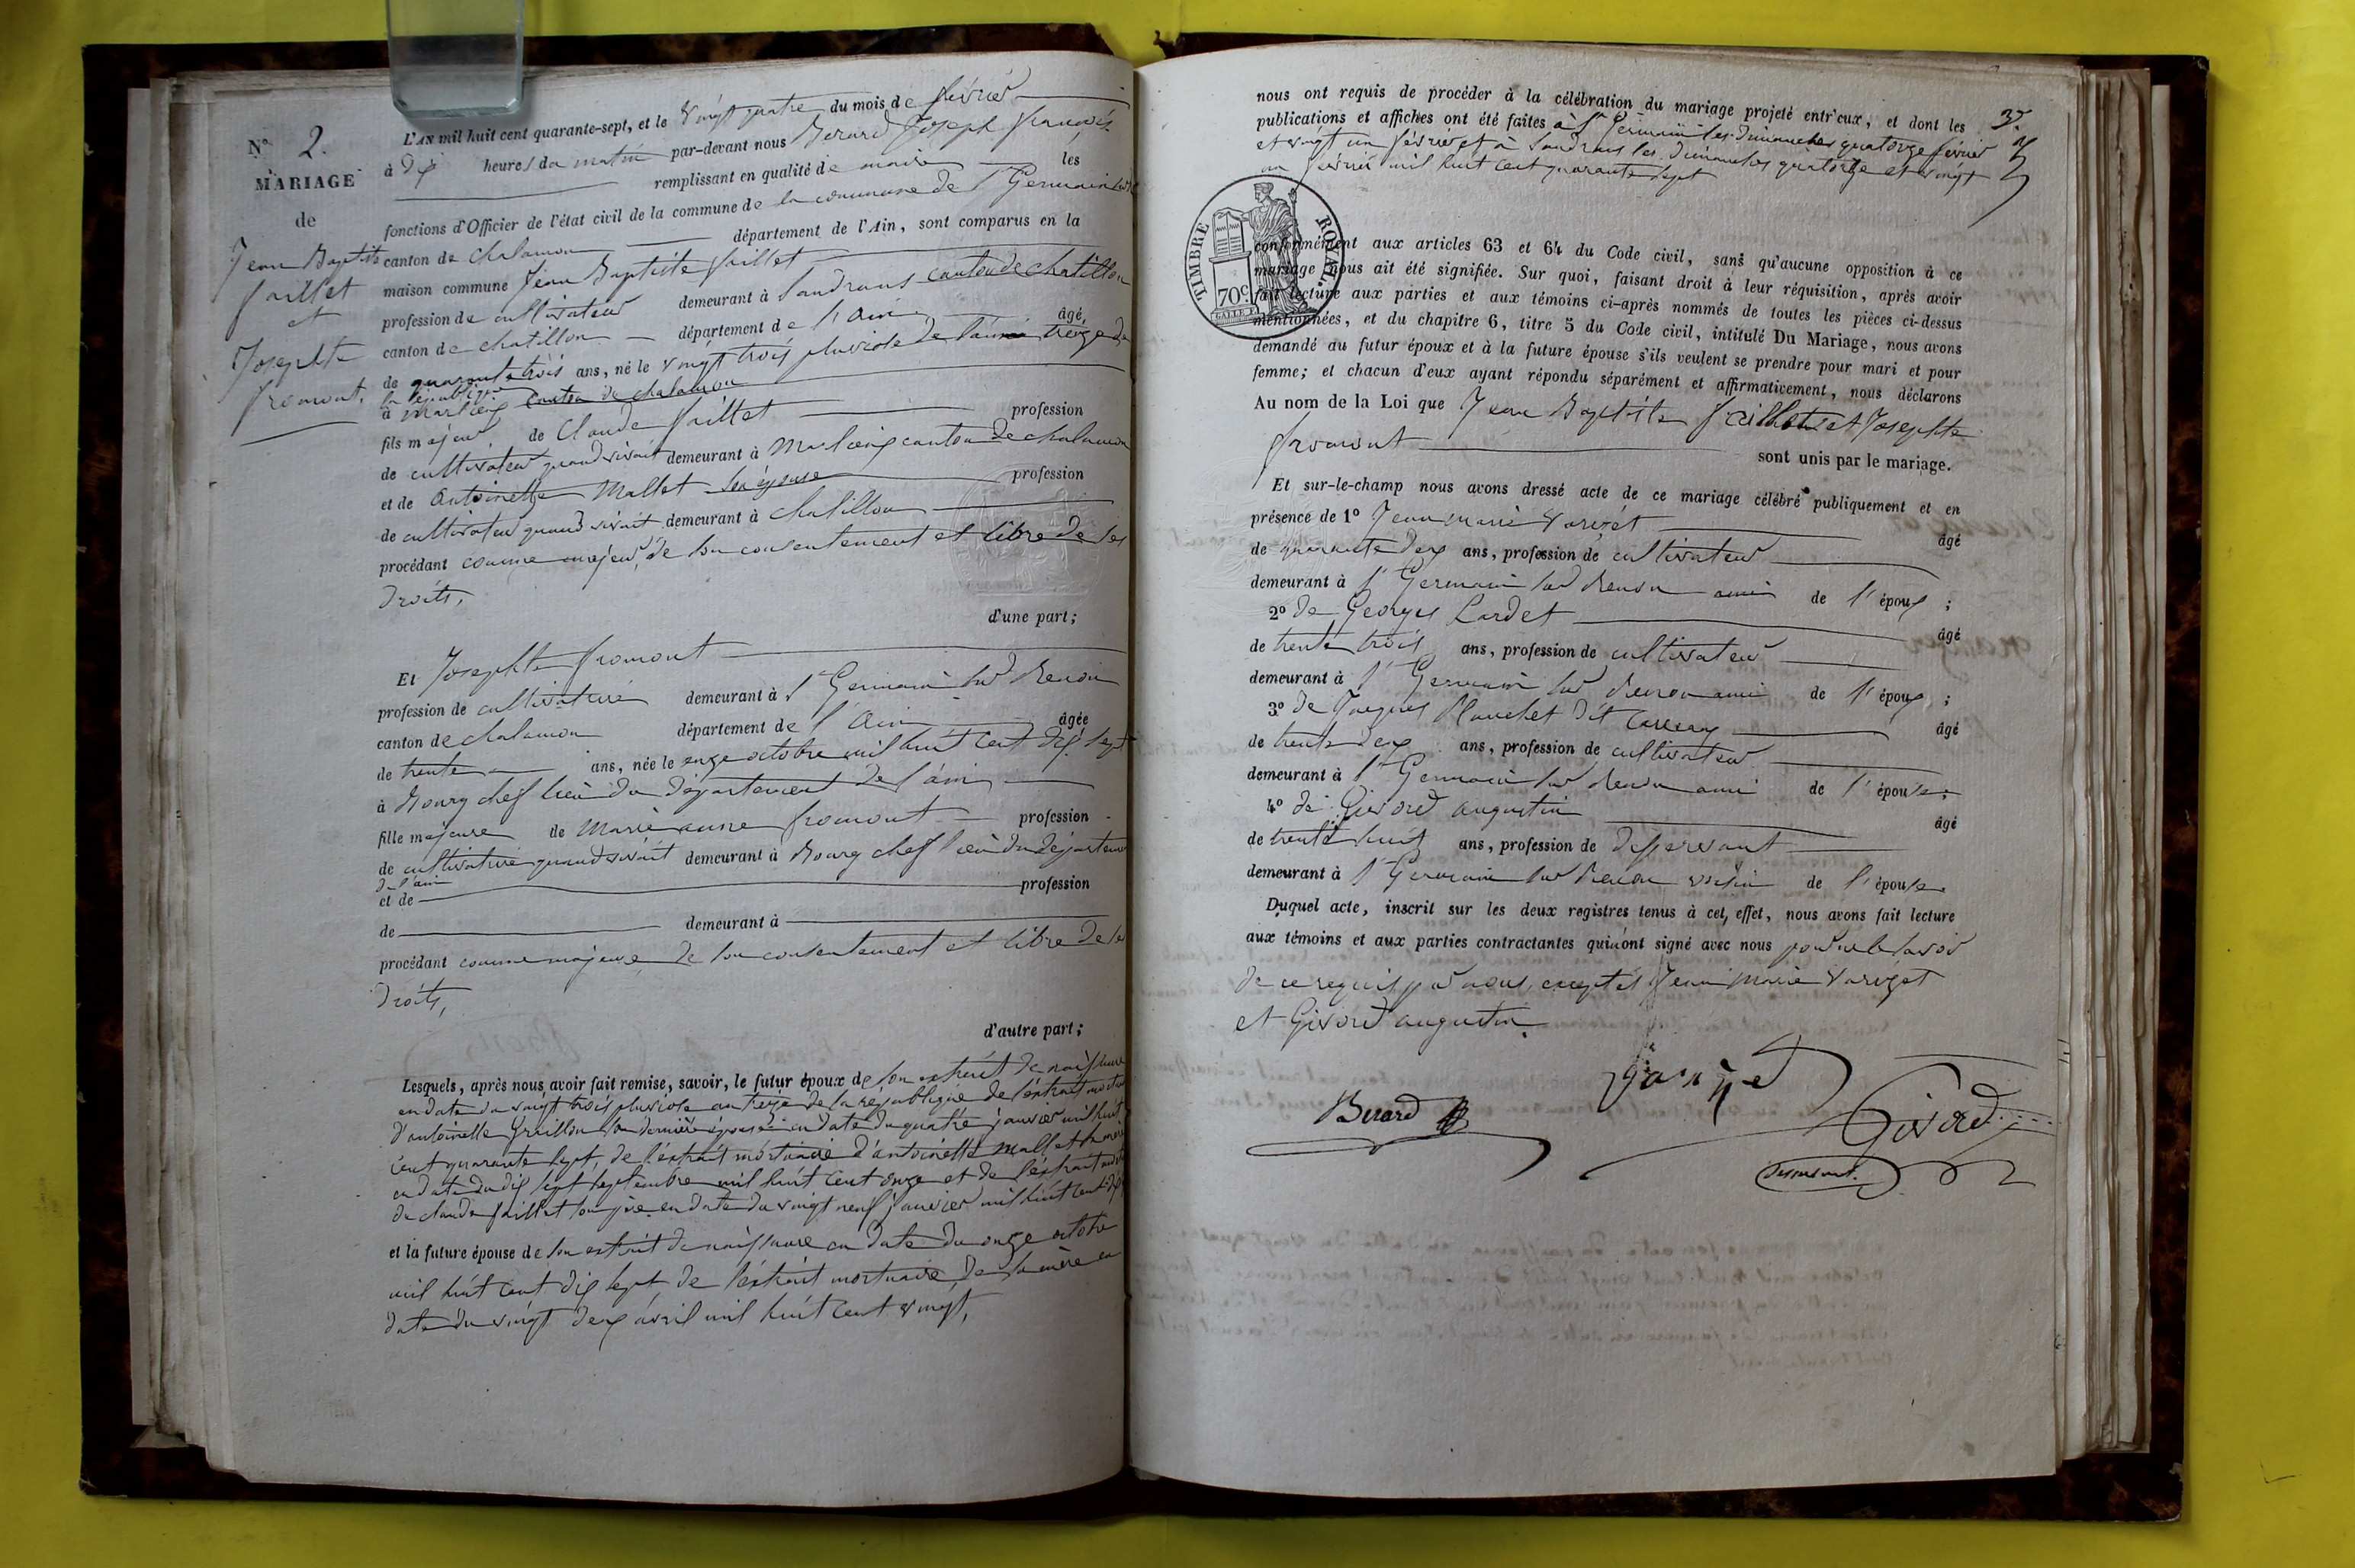 N° 2.
MARIAGE
de
Jean Baptiste
faillet
et
Josephte
fromont.
L'AN mil huit cent quarante-sept, et le vingt quatre du mois de février
à dix heures du matin par-devant nous Berard Joseph françois
remplissant en qualité de maire les
fonctions d'Officier de l'état civil de la commune de la commune de St Germain sur
canton de chalamon département de l'Ain, sont comparus en la
maison commune Jean Baptiste faillet
profession de cultivateur demeurant à Sandrans canton de chatillon
canton de chatillon département de l'ain âgé,
de quarante trois ans, né le vingt trois pluviose de l'année treize de
la république
à marlieux canton de chalamon
fils majeur de Claude faillet profession
de cultivateur quand vivait demeurant à Marlieux canton de chalamon
et de Antoinette Mallet son épouse profession
de cultivateur quand vivait demeurant à chatillon
procédant comme majeur, de son consentement et libre de ses
droits,
d'une part;
Et Josephte fromont
profession de cultivatrice demeurant à St Germain sur Renon
canton de chalamon département de l'Ain âgée
de trente ans, née le onze octobre mil huit cent dix sept
à Bourg chef lieu du département de l'ain
fille majeure de Marie anne fromont profession
de cultivatrice quand vivait demeurant à Bourg chef lieu du département
de l'ain
et de profession
de demeurant à
procédant comme majeure de son consentement et libre de ses
droits,
d'autre part;
Lesquels, après nous avoir fait remise, savoir, le futur époux de son extrait de naissance
en date du vingt trois pluviose an treize de la république de l'extrait
d'antoinette Graillon sa dernière épouse en date du quatre janvier mil huit
cent quarante sept, de l'extrait mortuaire d'antoinette mallet sa mère
en date du dix sept septembre mil huit cent onze et de l'extrait
de claude faillet son père en date du vingt neuf janvier mil huit cent dix
et la future épouse de son extrait de naissance en date du onze octobre
mil huit cent dix sept, de l'extrait mortuaire, de sa mère en
date du vingt deux avril mil huit cent vingt,
nous ont requis de procéder à la célébration du mariage projeté entr'eux, et dont les
publications et affiches ont été faites à St Germain les dimanches quatorze février
et vingt un février et à Sandrans les dimanches quatorze et vingt
un février mil huit cent quarante sept
TIMBRE ROYAL.
70c
conformément aux articles 63 et 64 du Code civil, sans qu'aucune opposition à ce
mariage nous ait été signifiée. Sur quoi, faisant droit à leur réquisition, après avoir
fait lecture aux parties et aux témoins ci-après nommés de toutes les pièces ci-dessus
mentionnées, et du chapitre 6, titre 5 du Code civil, intitulé Du Mariage, nous avons
demandé au futur époux et à la future épouse s'ils veulent se prendre pour mari et pour
femme; et chacun d'eux ayant répondu séparément et affirmativement, nous déclarons
Au nom de la Loi que Jean Baptiste faillet et Josephte
fromont sont unis par le mariage.
Et sur-le-champ nous avons dressé acte de ce mariage célébré publiquement et en
présence de 1° Jean marie Varizet âgé
de quarante deux ans, profession de cultivateur
demeurant à St Germain sur Renon ami de l'époux;
2° de Georges Lardet âgé
de trente trois ans, profession de cultivateur
demeurant à St Germain sur Renon ami de l'époux;
3° de Jacques Planchet dit âgé
de trente deux ans, profession de cultivateur
demeurant à St Germain sur Renon ami de l'épouse;
4° de Givord augustin âgé
de trente huit ans, profession de desservant
demeurant à St Germain sur Renon voisin de l'épouse.
Duquel acte, inscrit sur les deux registres tenus à cet effet, nous avons fait lecture
aux témoins et aux parties contractantes qui n'ont signé avec nous pour ne le savoir
de ce requis par nous, exceptés Jean Marie Varizet
et Givord augustin.
Varizet
Berard
Givord
desservant.